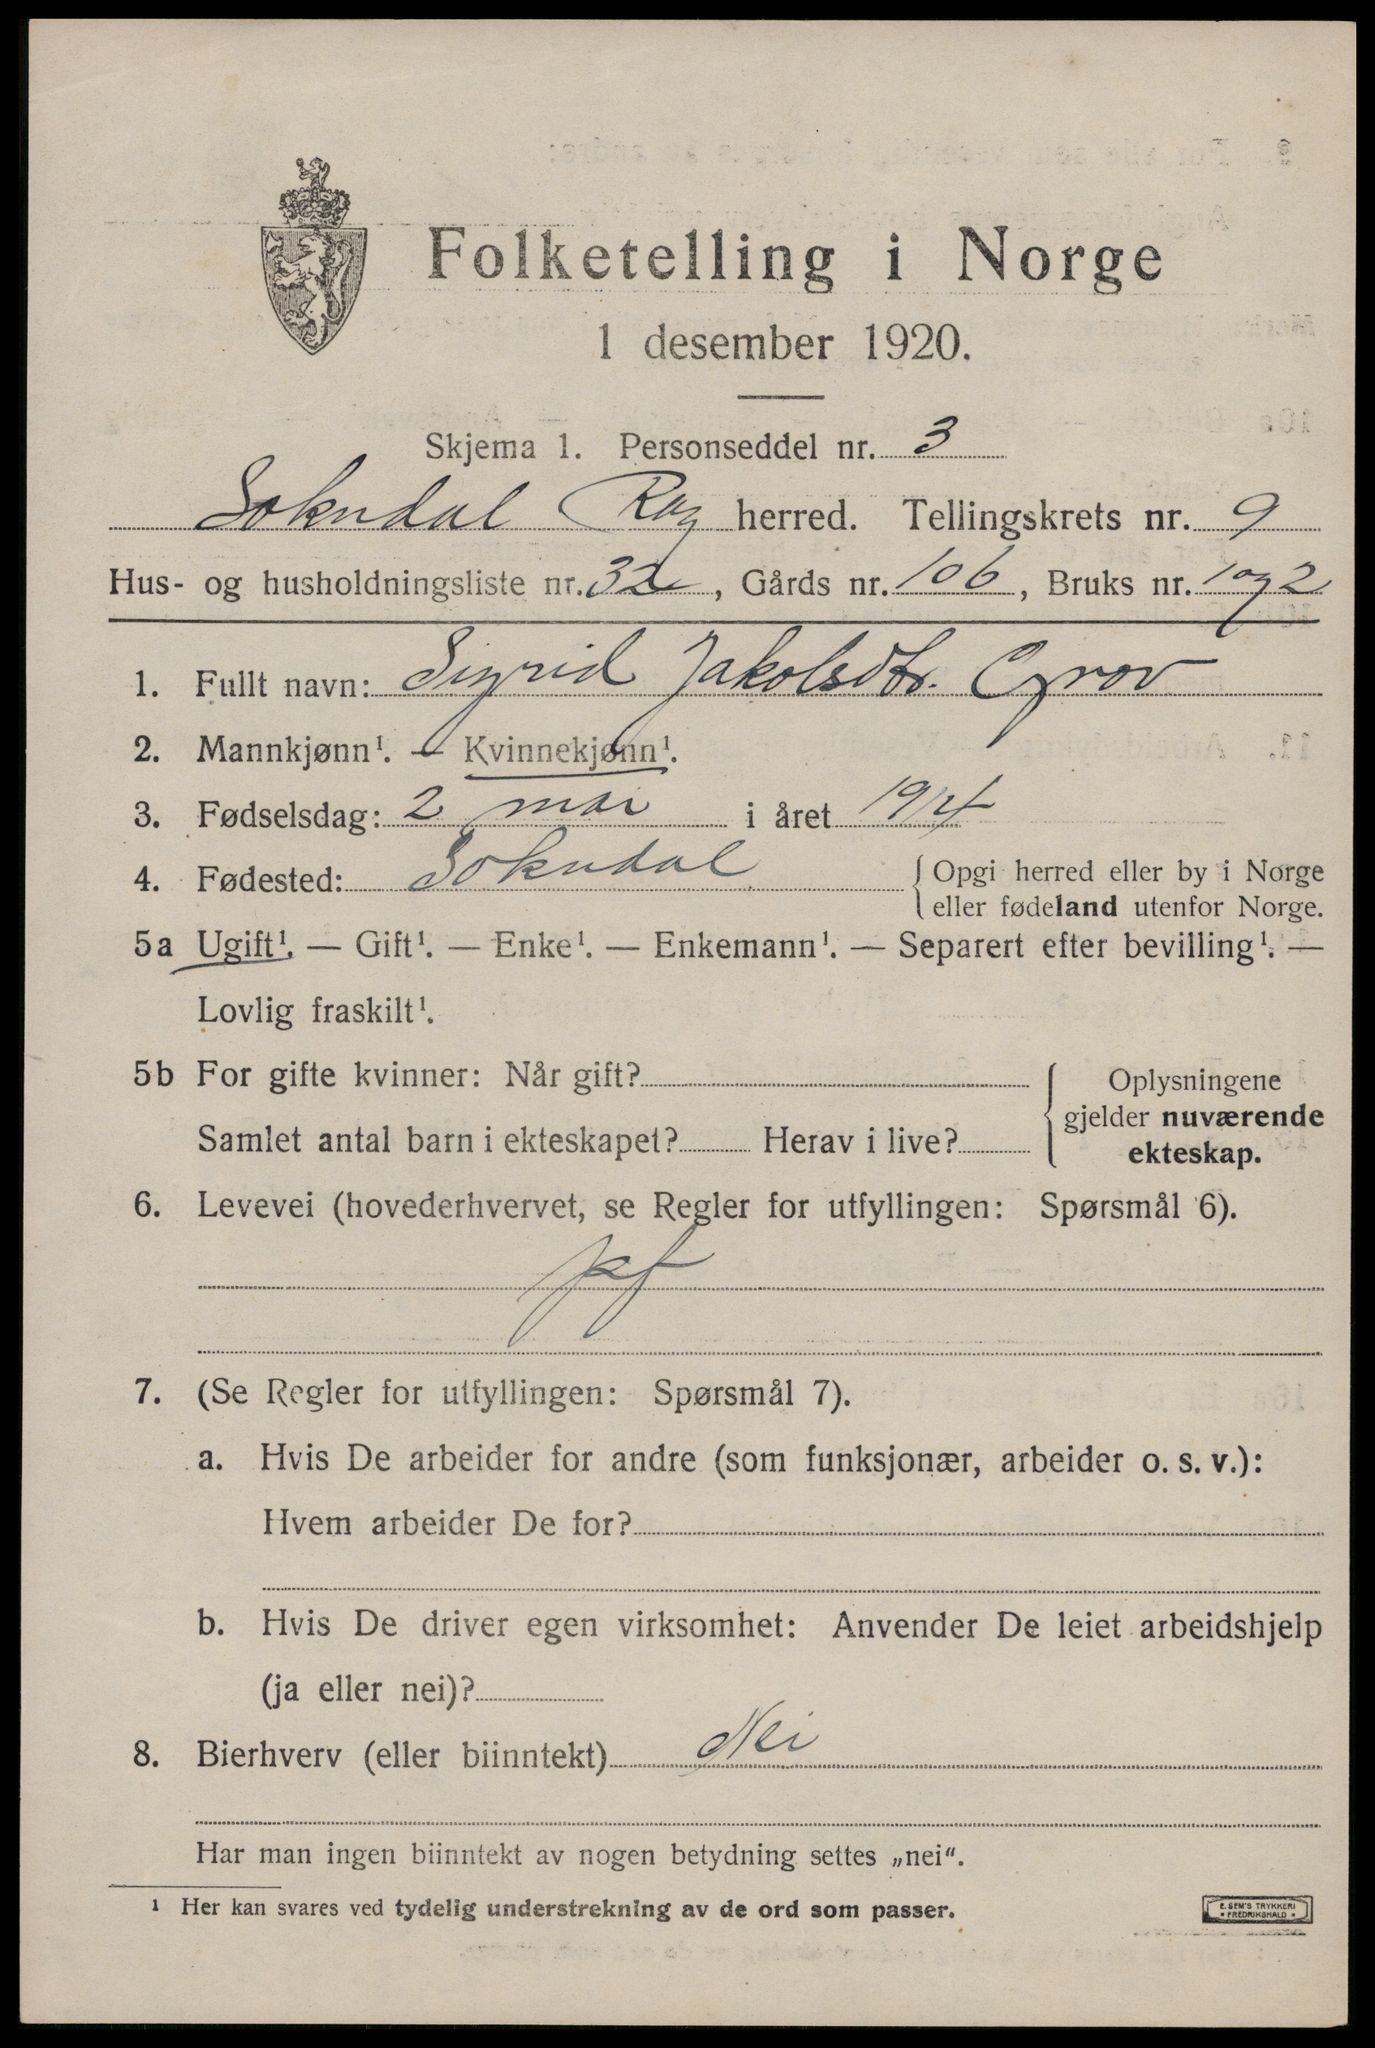 Folketelling i Norge
1 desember 1920.
Skjema 1. Personseddel nr. 3
Sokndal herred. Tellingskrets nr. 9
Hus- og husholdningsliste nr. 32, Gårds nr. 106, Bruks nr. 1 og 2
1. Fullt navn: Sigrid Jakobsdtr. Grov
2. Mannkjønn¹. — Kvinnekjønn¹.
3. Fødselsdag: 2 mai i året 1914
4. Fødested: Sokndal { Opgi herred eller by i Norge
eller fødeland utenfor Norge.
5a Ugift¹. — Gift¹. — Enke¹. — Enkemann¹. — Separert efter bevilling¹. —
Lovlig fraskilt¹.
5b For gifte kvinner: Når gift? { Oplysningene
gjelder nuværende
Samlet antal barn i ekteskapet? Herav i live?
ekteskap.
6. Levevei (hovederhvervet, se Regler for utfyllingen: Spørsmål 6).
pf
7. (Se Regler for utfyllingen: Spørsmål 7).
a. Hvis De arbeider for andre (som funksjonær, arbeider o. s. v.):
Hvem arbeider De for?
b. Hvis De driver egen virksomhet: Anvender De leiet arbeidshjelp
(ja eller nei)?
8. Bierhverv (eller biinntekt) Nei
Har man ingen biinntekt av nogen betydning settes „nei“.
¹ Her kan svares ved tydelig understrekning av de ord som passer.
E. SEM'S TRYKKERI
* FREDRIKSHALD *